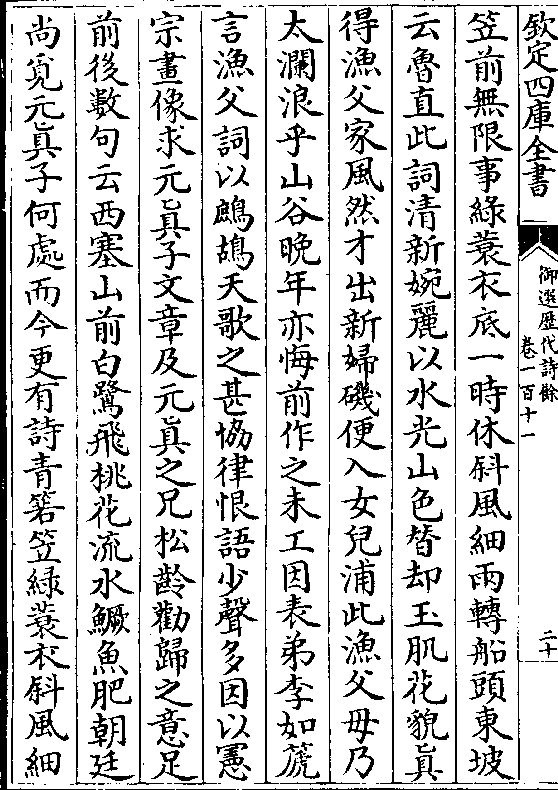 欽定四庫全書
御選歴代詩餘
卷一百十一
二十
笠前無限事綠蓑衣底一時休斜風細雨轉船頭東坡
云魯直此詞清新婉麗以水光山色替却玉肌花貌眞
得漁父家風然才出新婦磯便入女兒浦此漁父毋乃
太瀾浪乎山谷晚年亦悔前作之未工因表弟李如箎
言漁父詞以鷓鴣天歌之甚恊律恨語少聲多因以憲
宗畫像求元眞子文章及元眞之兄松齡勸歸之意足
前後數句云西塞山前白鷺飛桃花流水鱖魚肥朝廷
尚覓元眞子何處而今更有詩青箬笠緑蓑衣斜風細